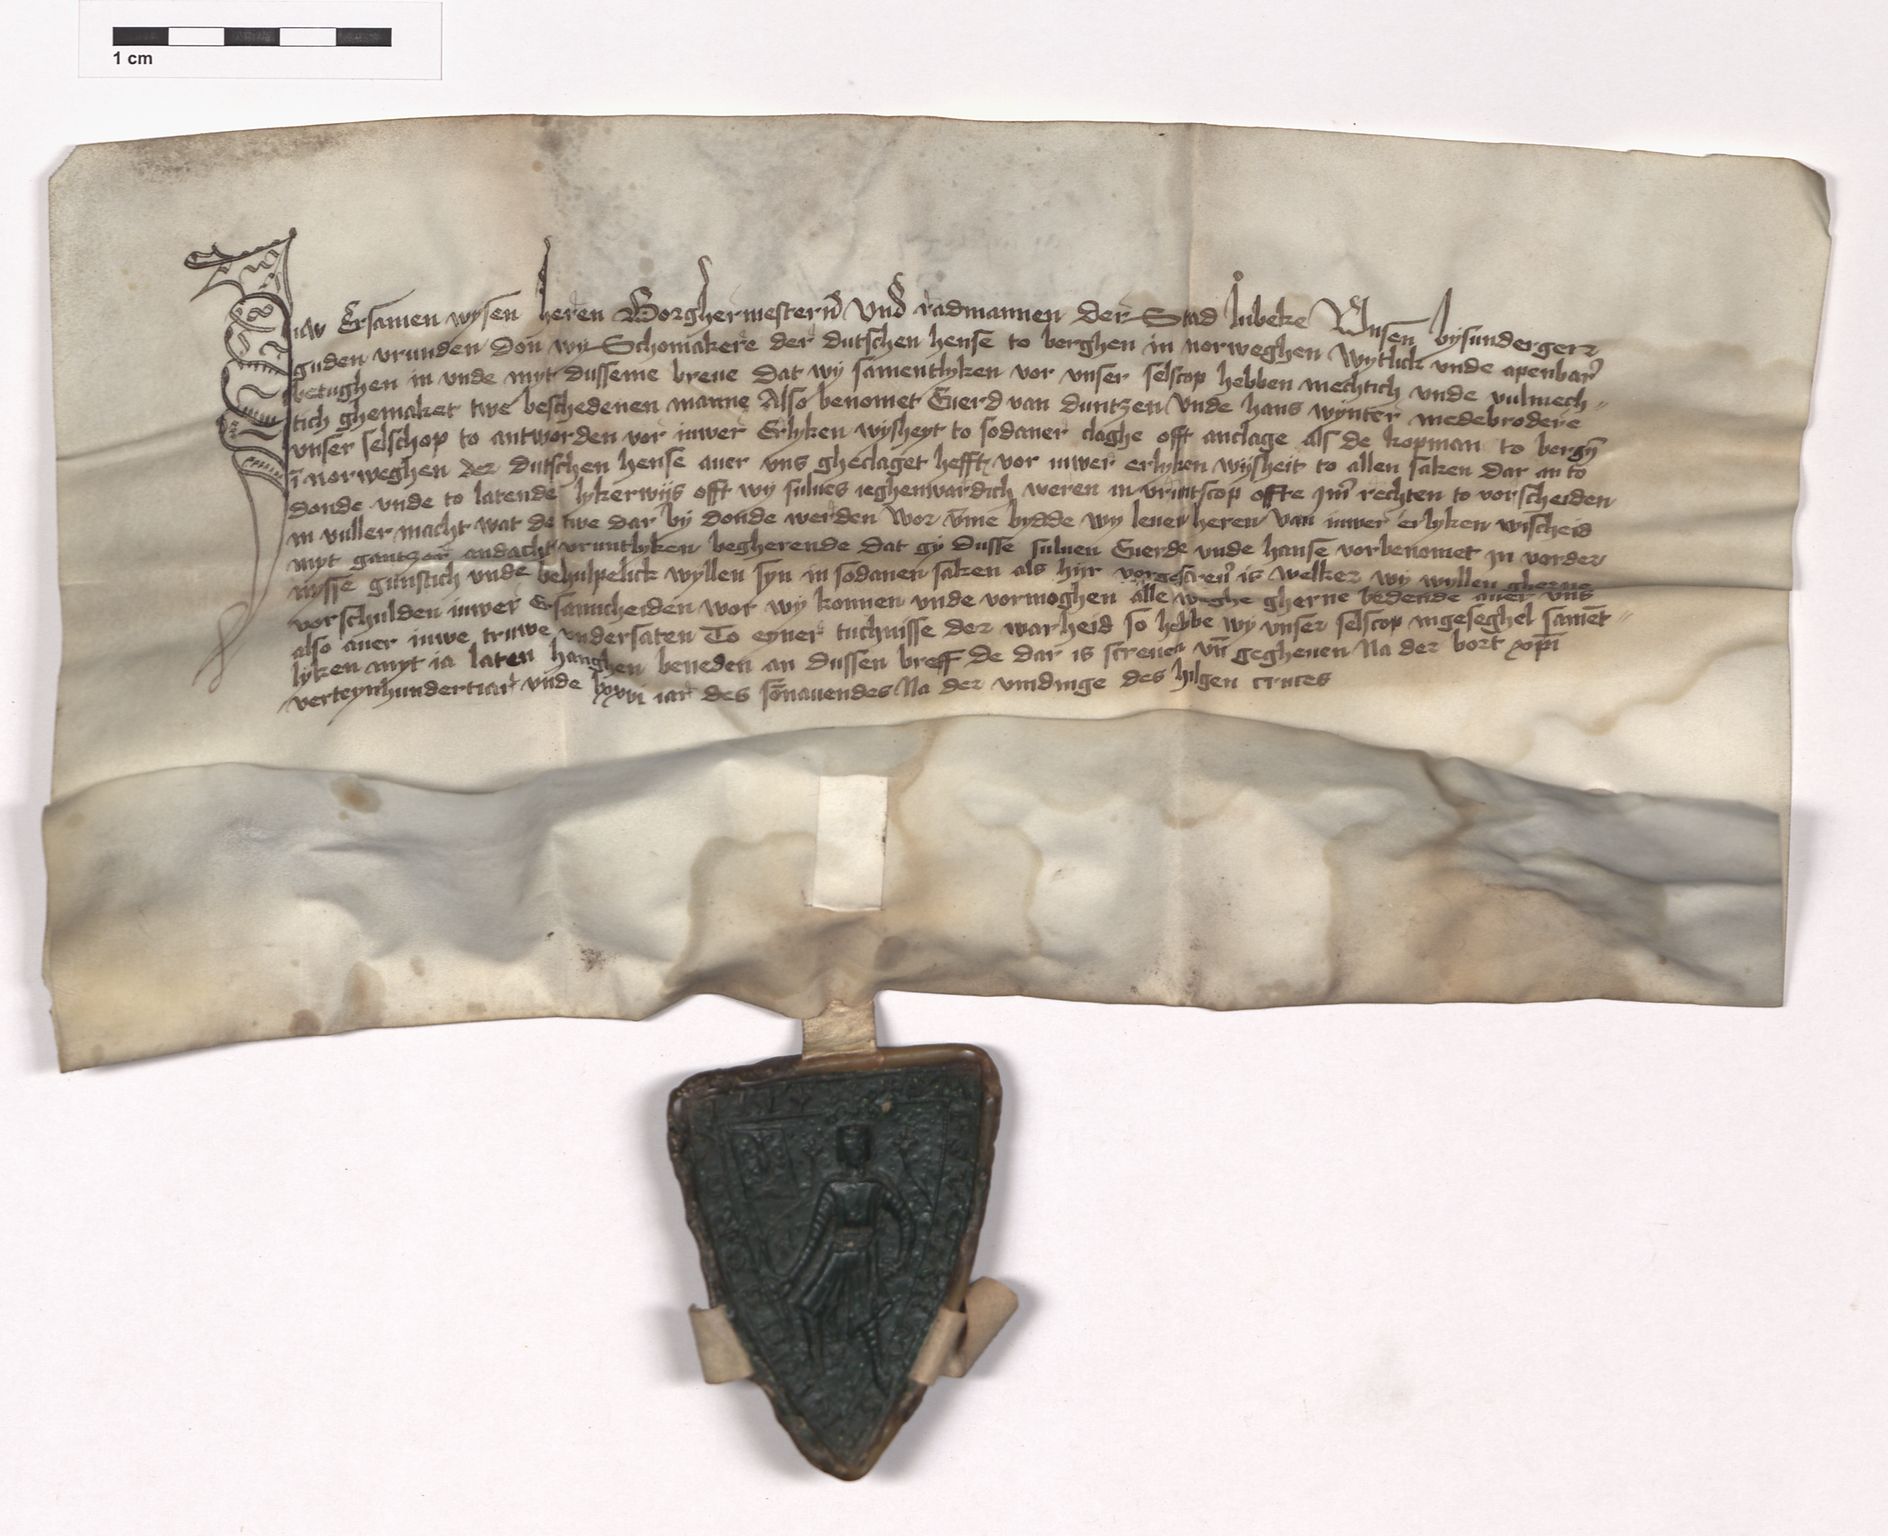 1 cm
Juw Ersamen wysen heren Borghermestern̄ Vnd radmannen der Stad lubeke Vnsen bysundergen
guden vrunden don wy Schomakere der dutschen hense to berghen in norweghen Wytlick vnde apenbar
betughen in vnde myt dusseme breue Dat wy samentlyken vor vnser selscop hebben mechtich vnde vulmech
tich ghemaket twe beschedenen manne Also benomet Euerd van duntzen Vnde hans wynter medebrodere
vnser selschop to antworden vor iuwer Erlyken wysheyt to sodaner claghe offt anclage als de kopman to bergē
ī norweghen der dutschen hense auer vns gheclaget hefft vor iuwer erlyken wijsheit to allen saken dar an to
donde vnde to latende lykerwijs offt wy sulues ieghenwardich weren in vruntscop offte jm̄ rechten to vorscheiden
in vuller macht wat de twe dar by donde werden Wor v̄me bydde wy leuen heren Van iuwer erlyken wischeid
myt gantzer andacht vruntlyken begherende dat gy dusse suluen Euerde vnde hanse vorbenomet jn vorder
nysse gunstich vnde behulpelick wyllen syn in sodanen saken als hijr vorgescreu̅ is welker wy wyllen gherne
vorschulden iuwer Ersamicheiden wor wy konnen vnde vormoghen alle weghe gherne bedende auer vns
also auer iuwe truwe vndersaten To eyner tuchnisse der warheid so hebbe wy vnser selscop ingeseghel samēt
lyken myt ia laten hanghen beneden an dussen breff de dar is screuen vn̄ gegheuen Na der bort xp̄i
verteynhundertiar vnde lxxvi iar des sōnauendes Na der vindinge des hilgen cruces